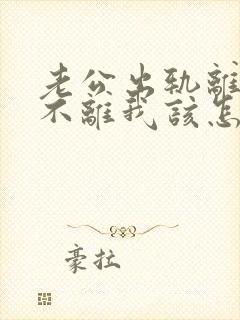 老公出轨離
不離我該怎
豪拉